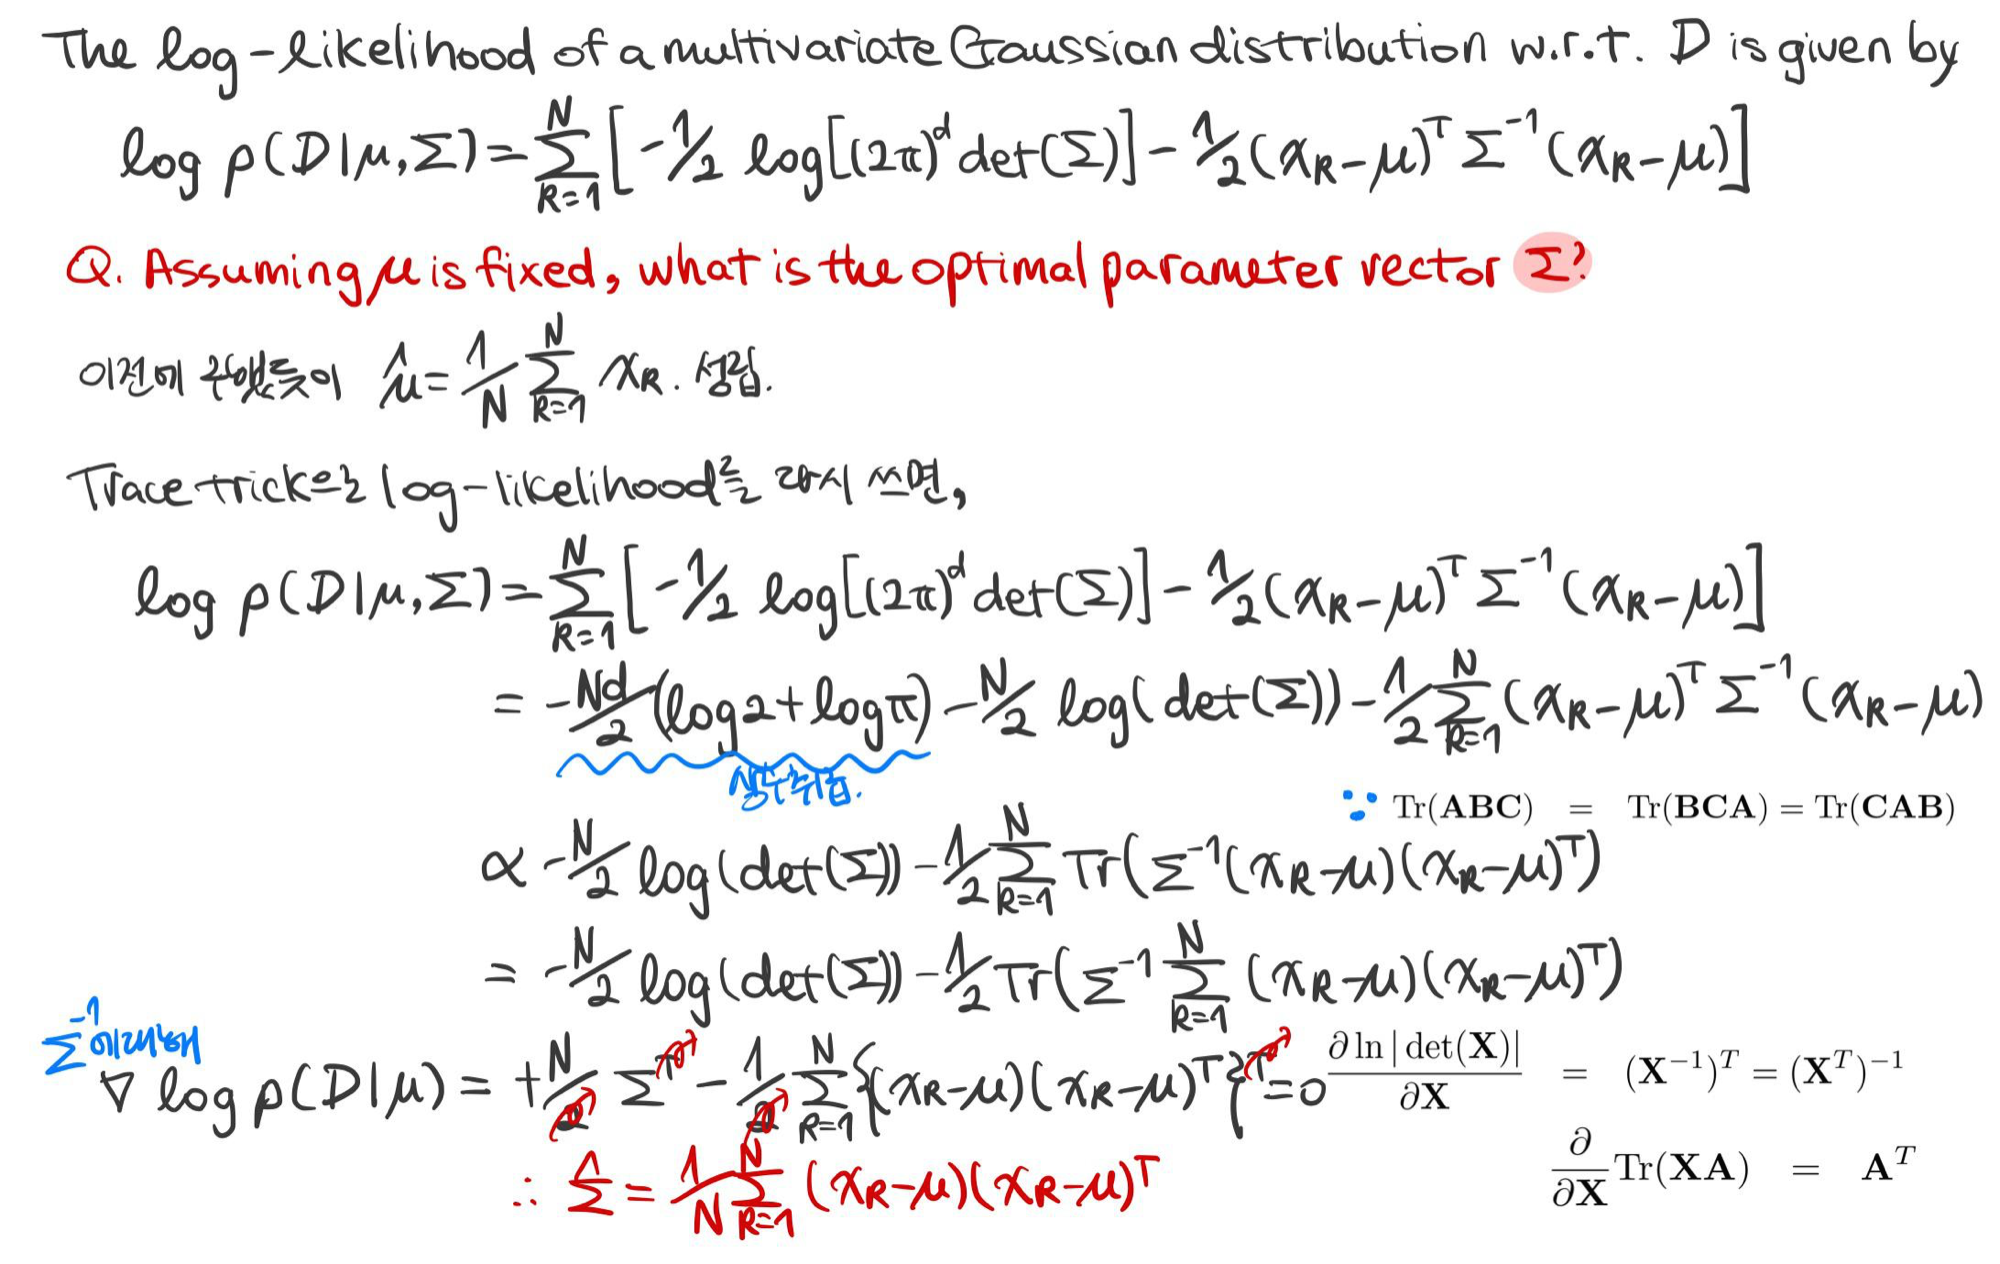 The log-likelihood of a multivariate Gaussian distribution w.r.t. D is given by
log p(D|μ,Σ) = Σ_{k=1}^{N} [-1/2 log[(2π)^d det(Σ)] - 1/2 (x_k-μ)^T Σ^{-1} (x_k-μ)]
Q. Assuming μ is fixed, what is the optimal parameter vector Σ?
이전에 구했듯이 μ̂ = 1/N Σ_{k=1}^{N} x_k. 성립.
Trace trick으로 log-likelihood를 다시 쓰면,
log p(D|μ,Σ) = Σ_{k=1}^{N} [-1/2 log[(2π)^d det(Σ)] - 1/2 (x_k-μ)^T Σ^{-1} (x_k-μ)]
= -Nd/2 (log2+logπ) - N/2 log(det(Σ)) - 1/2 Σ_{k=1}^{N} (x_k-μ)^T Σ^{-1} (x_k-μ)
상수취급.
∵ Tr(ABC) = Tr(BCA) = Tr(CAB)
∝ -N/2 log(det(Σ)) - 1/2 Σ_{k=1}^{N} Tr(Σ^{-1}(x_k-μ)(x_k-μ)^T)
= -N/2 log(det(Σ)) - 1/2 Tr(Σ^{-1} Σ_{k=1}^{N} (x_k-μ)(x_k-μ)^T)
Σ^{-1}에 대해
∇ log p(D|μ) = +N/2 Σ^T - 1/2 Σ_{k=1}^{N} {(x_k-μ)(x_k-μ)^T}^T = 0
∂ ln |det(X)| / ∂X = (X^{-1})^T = (X^T)^{-1}
∂/∂X Tr(XA) = A^T
∴ Σ̂ = 1/N Σ_{k=1}^{N} (x_k-μ)(x_k-μ)^T